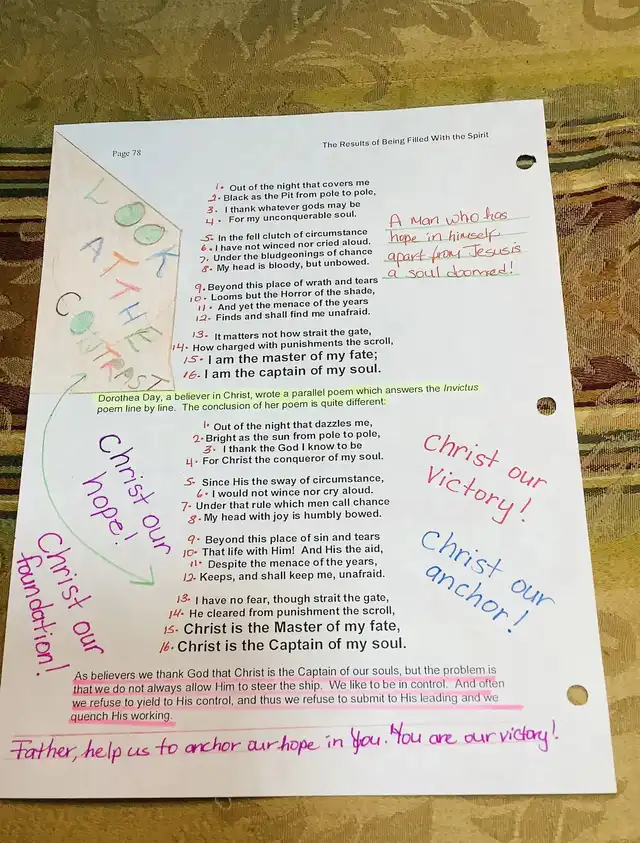 Page 78
The Results of Being Filled With the Spirit
LOOK
AT THE
CONTRAST
1. Out of the night that covers me
2. Black as the Pit from pole to pole,
3. I thank whatever gods may be
4. For my unconquerable soul.
5. In the fell clutch of circumstance
6. I have not winced nor cried aloud.
7. Under the bludgeonings of chance
8. My head is bloody, but unbowed.
A man who has
hope in himself
apart from Jesus is
a soul doomed!
9. Beyond this place of wrath and tears
10. Looms but the Horror of the shade,
11. And yet the menace of the years
12. Finds and shall find me unafraid.
13. It matters not how strait the gate,
14. How charged with punishments the scroll,
15. I am the master of my fate;
16. I am the captain of my soul.
Dorothea Day, a believer in Christ, wrote a parallel poem which answers the Invictus
poem line by line. The conclusion of her poem is quite different:
1. Out of the night that dazzles me,
2. Bright as the sun from pole to pole,
3. I thank the God I know to be
4. For Christ the conqueror of my soul.
5. Since His the sway of circumstance,
6. I would not wince nor cry aloud.
7. Under that rule which men call chance
8. My head with joy is humbly bowed.
9. Beyond this place of sin and tears
10. That life with Him! And His the aid,
11. Despite the menace of the years,
12. Keeps, and shall keep me, unafraid.
13. I have no fear, though strait the gate,
14. He cleared from punishment the scroll,
15. Christ is the Master of my fate,
16. Christ is the Captain of my soul.
Christ our
hope!
Christ our
foundation!
Christ our
Victory!
Christ our
anchor!
As believers we thank God that Christ is the Captain of our souls, but the problem is
that we do not always allow Him to steer the ship. We like to be in control. And often
we refuse to yield to His control, and thus we refuse to submit to His leading and we
quench His working.
Father, help us to anchor our hope in You. You are our victory!